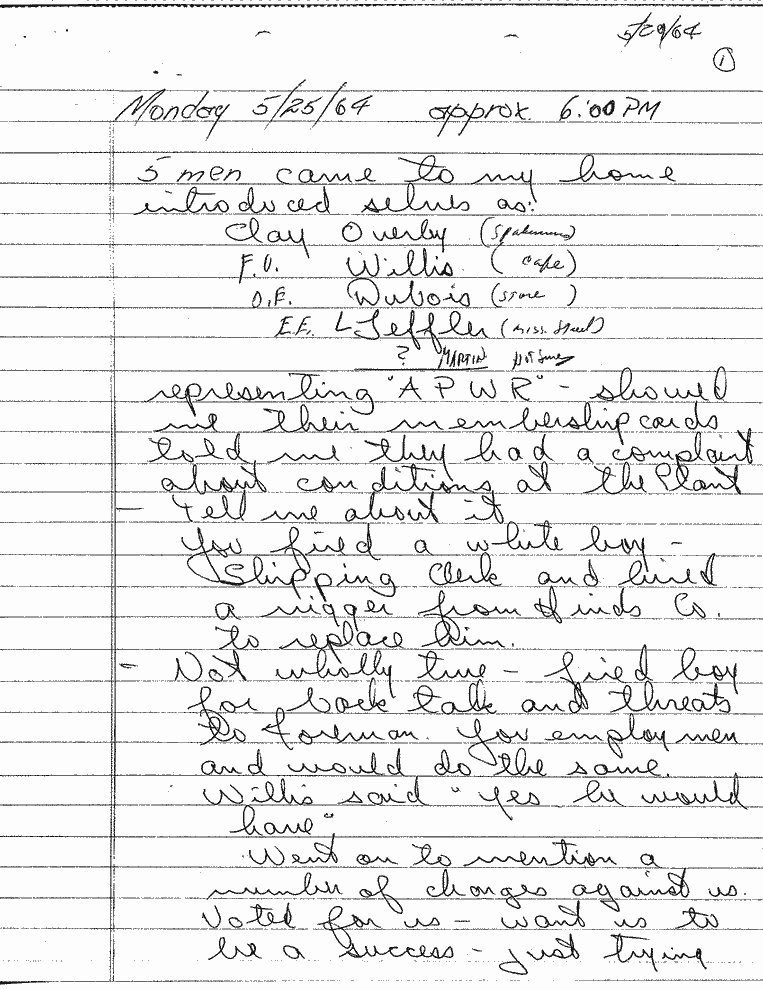 5/29/64
1
Monday 5/25/64 approx. 6:00 PM
5 men came to my home
introduced selves as:
Clay Overby
F.O. Willis (Cafe)
O.F. Dubois (Store)
E.E. Leffler (Miss. Steel)
? MARTIN Not Sure
representing "A P W R" - showed
me their membership cards
told me they had a complaint
about conditions at the Plant
- Tell me about it
You fired a white boy -
Shipping Clerk and hired
a nigger from Hinds Co.
to replace him.
- Not wholly true - fired boy
for back talk and threats
to foreman. You employ men
and would do the same.
Willis said "yes he would
have"
Went on to mention a
number of charges against us.
Voted for us - want us to
be a success - just trying